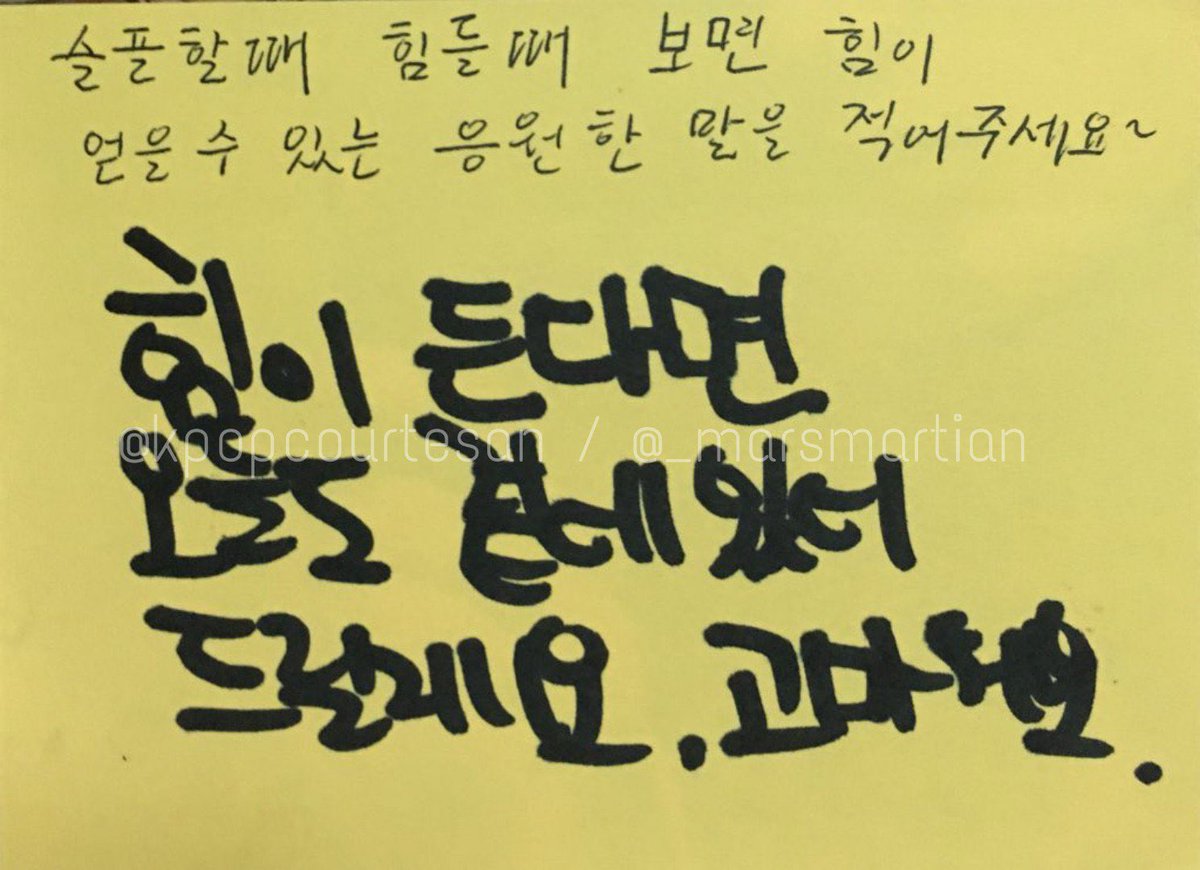 슬플할때 힘들때 보면 힘이
얻을수 있는 응원한 말을 적어주세요~
힘이 든다면
@kpopcourtesan / @_marsmartian
오늘도 곁에 있어
드릴게요. 고마워요.